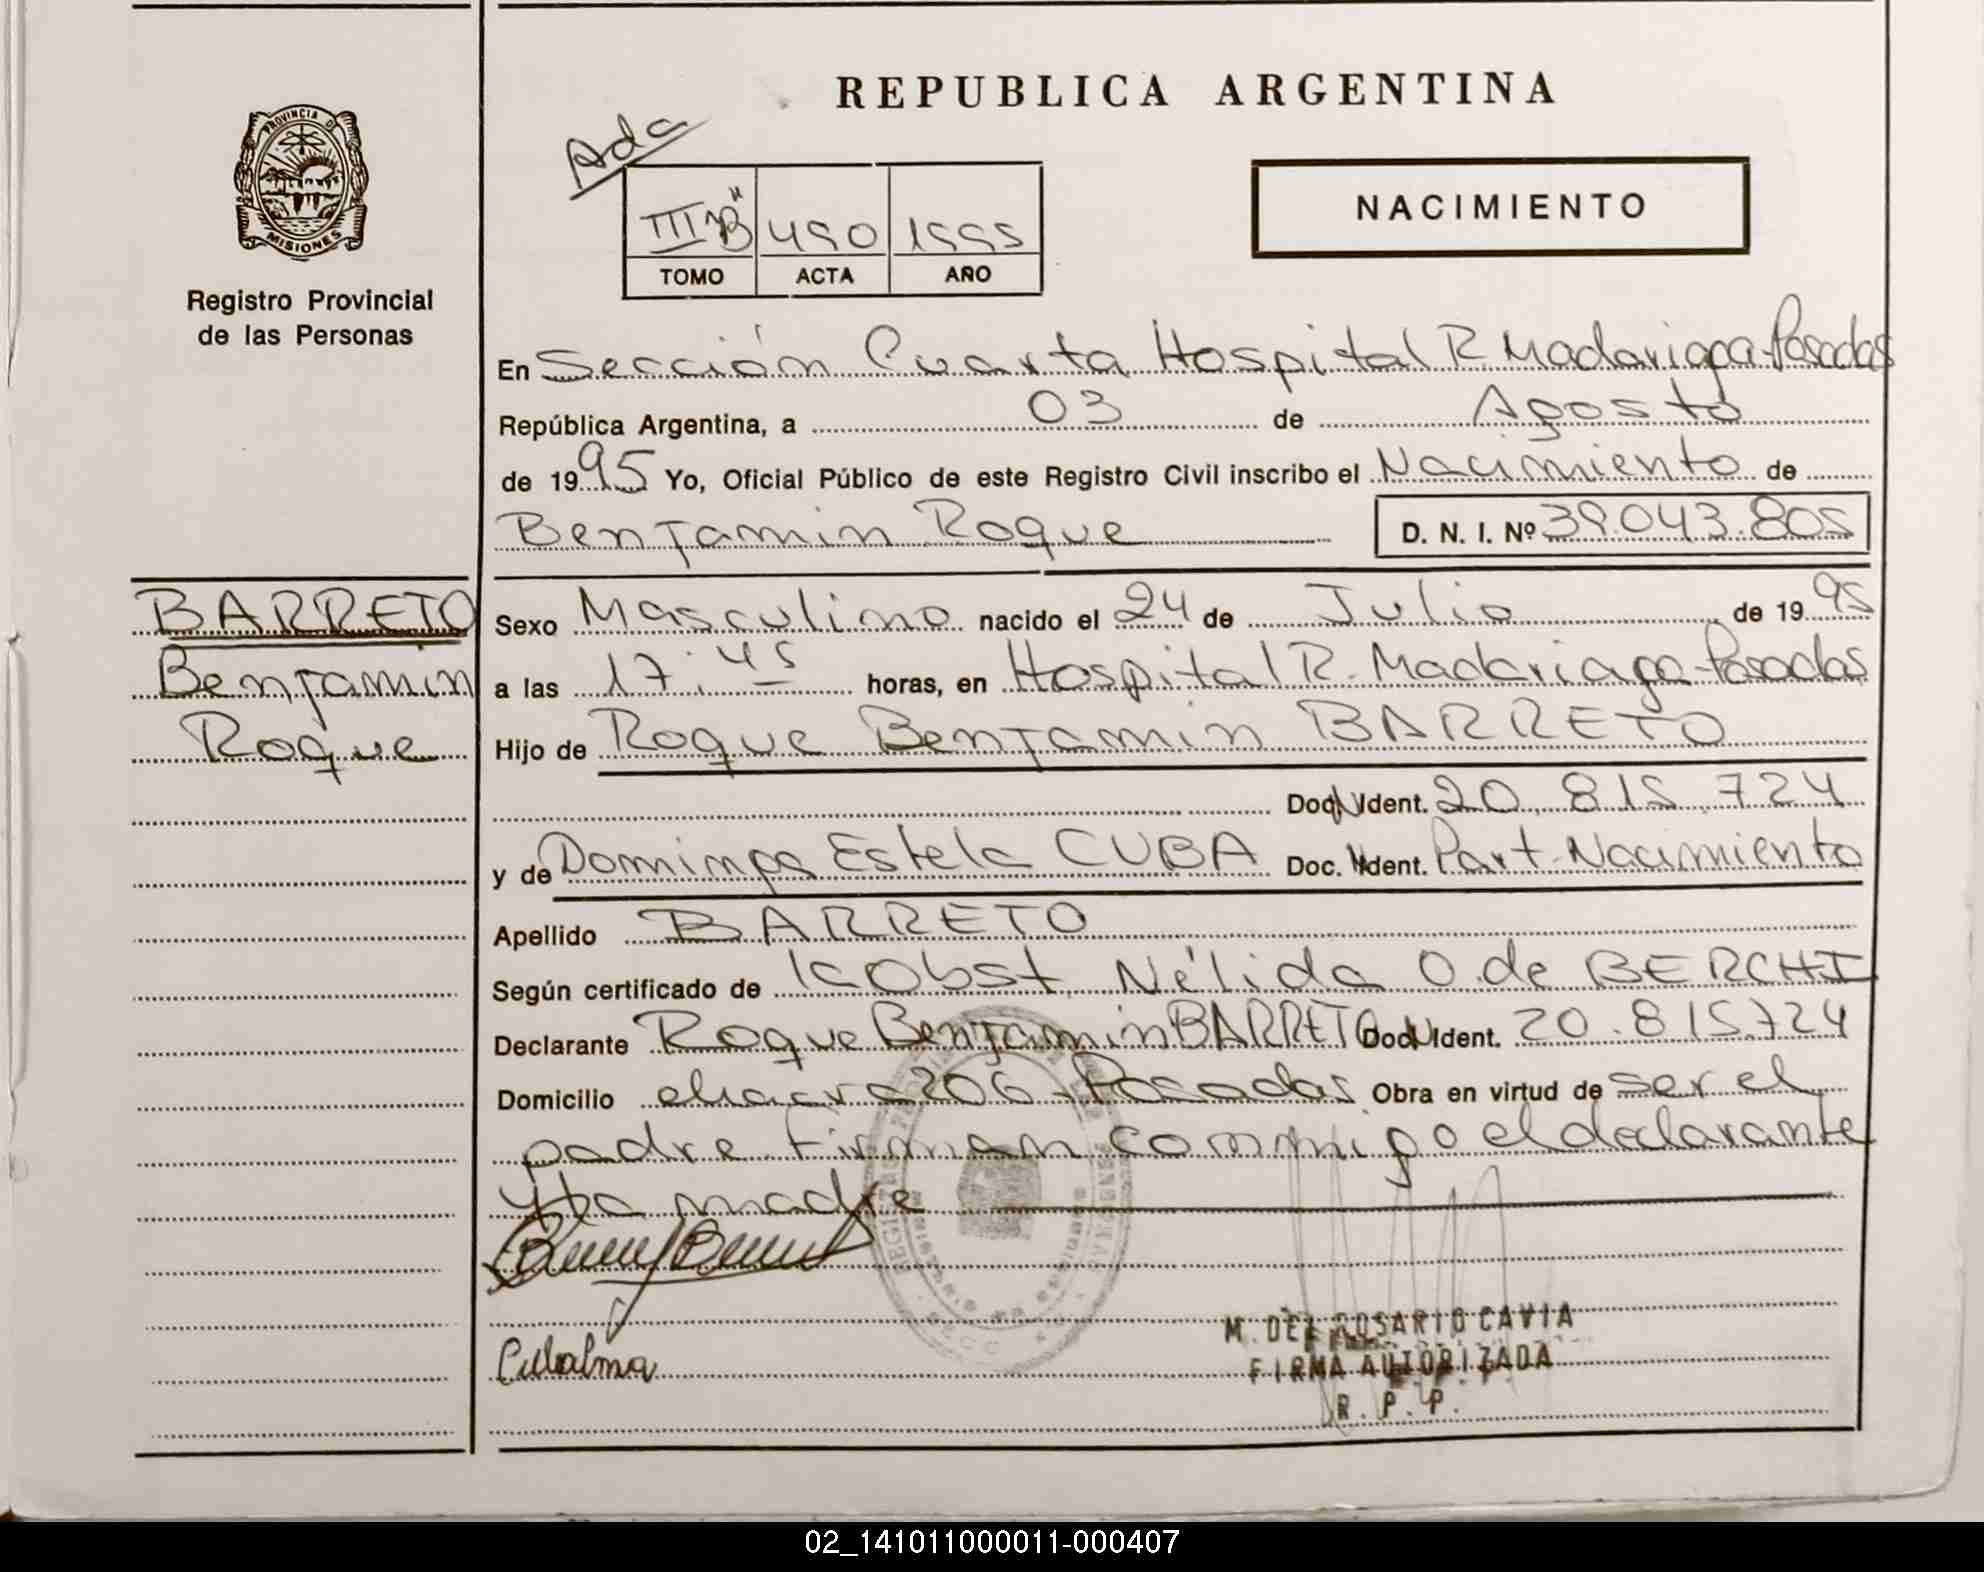 REPUBLICA ARGENTINA
PROVINCIA DE
MISIONES
Registro Provincial
de las Personas
Ada
III "B" 490 1995
TOMO ACTA AÑO
NACIMIENTO
En Sección Cuarta Hospital R Madariaga-Posadas
República Argentina, a 03 de Agosto
de 1995 Yo, Oficial Público de este Registro Civil inscribo el Nacimiento de
Benjamin Roque D. N. I. Nº 39.043.805
BARRETO
Benjamin
Roque
Sexo Masculino nacido el 24 de Julio de 1995
a las 17:45 horas, en Hospital R. Madariaga-Posadas
Hijo de Roque Benjamin BARRETO
Doc. Ident. 20.815.724
y de Dominga Estela CUBA Doc. Ident. Part. Nacimiento
Apellido BARRETO
Según certificado de Obst. Nélida O. de BERCHI
Declarante Roque Benjamin BARRETO Doc. Ident. 20.815.724
Domicilio chacra 206 - Posadas Obra en virtud de ser el
padre firman conmigo el declarante
y la madre
M. DEL ROSARIO CAVIA
FIRMA AUTORIZADA
R. P. P.
02_141011000011-000407